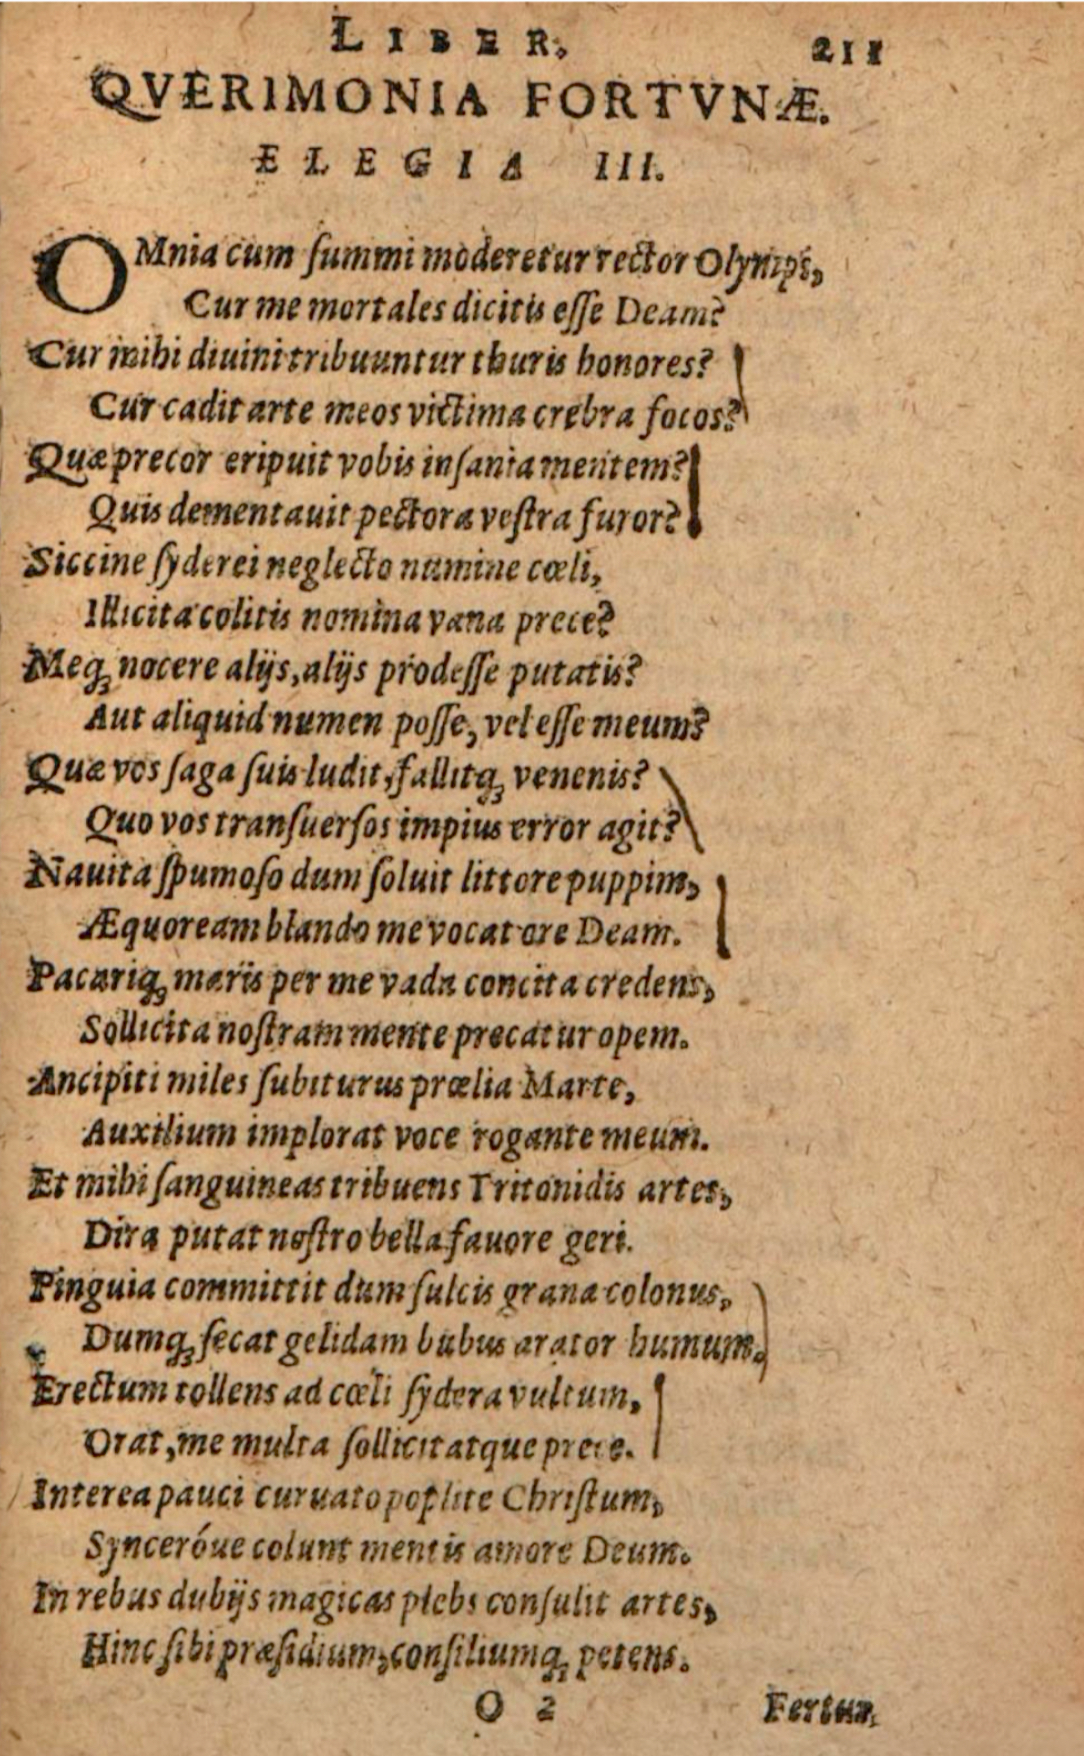 LIBER. 211
QVERIMONIA FORTVNÆ.
ELEGIA III.
OMnia cum summi moderetur rector Olympi,
Cur me mortales dicitis esse Deam?
Cur mihi diuini tribuuntur thuris honores?
Cur cadit arte meos victima crebra focos?
Quæ precor eripuit vobis insania mentem?
Quis dementauit pectora vestra furor?
Siccine syderei neglecto numine cœli,
Illicita colitis nomina vana prece?
Meq; nocere alijs, alijs prodesse putatis?
Aut aliquid numen posse, vel esse meum?
Quæ vos saga suis ludit, fallitq; venenis?
Quo vos transuersos impius error agit?
Nauita spumoso dum soluit littore puppim,
Æquoream blando me vocat ore Deam.
Pacariq; maris per me vada concita credens,
Sollicita nostram mente precatur opem.
Ancipiti miles subiturus prœlia Marte,
Auxilium implorat voce rogante meum.
Et mihi sanguineas tribuens Tritonidis artes,
Dira putat nostro bella fauore geri.
Pinguia committit dum sulcis grana colonus,
Dumq; secat gelidam bubus arator humum.
Erectum tollens ad cœli sydera vultum,
Orat, me multa sollicitatque prece.
Interea pauci curuato poplite Christum,
Synceróue colunt mentis amore Deum.
In rebus dubijs magicas plebs consulit artes,
Hinc sibi præsidium, consiliumq; petens.
O 2 Fertur.